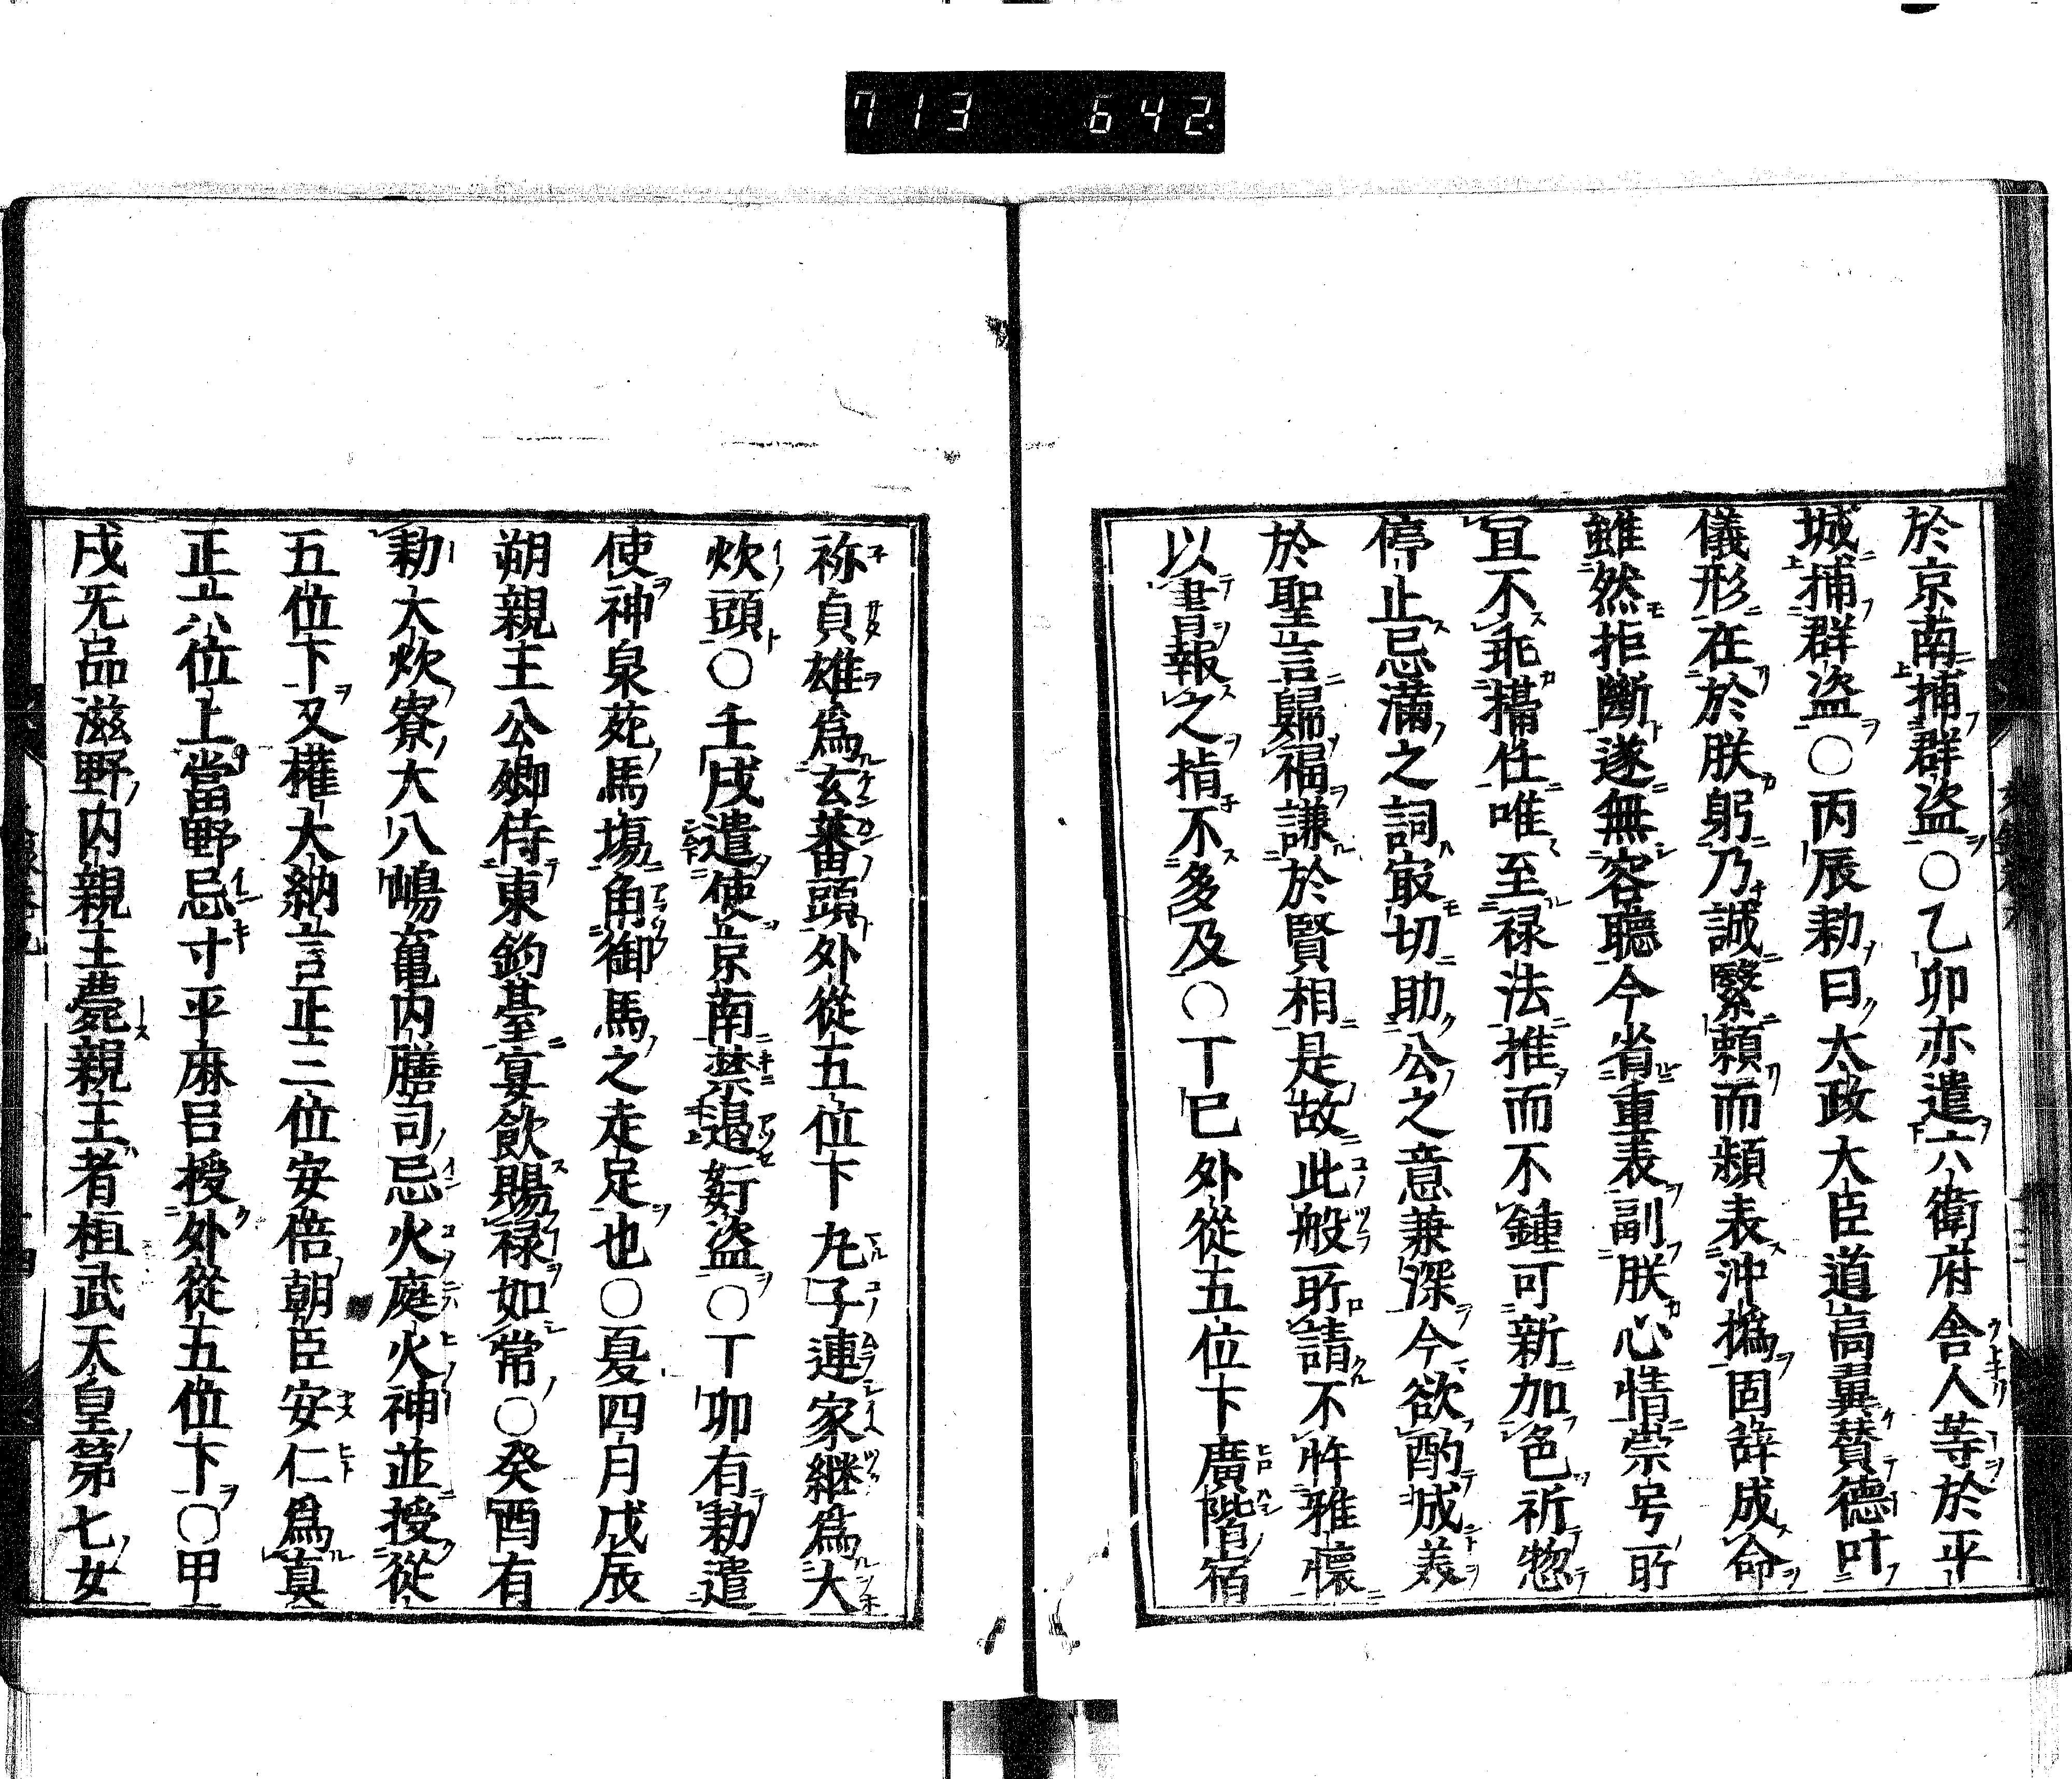 713 642
於京南捕群盗〇乙卯亦遣六衛府舎人等於平
城捕群盗〇丙辰勅曰太政大臣道高翼賛德叶
儀形在於朕躬乃誠繄頼而頻表沖撝固辞成命
雖然拒斷遂無容聽今省重表副朕心情崇号所
宜不乖攝任唯至禄法推而不鍾可新加色祈惣
停止忌滿之詞寂切助公之意兼深今欲酌成義
於聖言歸福謙於賢相是故此般所請不忤雅懷
以書報之指不多及〇丁巳外從五位下廣階宿
祢貞雄爲玄蕃頭外從五位下丸子連家継爲大
炊頭〇壬戌遣使京南禁遏奸盗〇丁卯有勅遣
使神泉苑馬塲角御馬之走足也〇夏四月戊辰
朔親王公卿侍東釣臺宴飲賜禄如常〇癸酉有
勅大炊寮大八嶋竃内膳司忌火庭火神並授從
五位下又權大納言正三位安倍朝臣安仁爲眞
正六位上當野忌寸平麻呂授外從五位下〇甲
戌无品滋野内親王薨親王者桓武天皇第七女